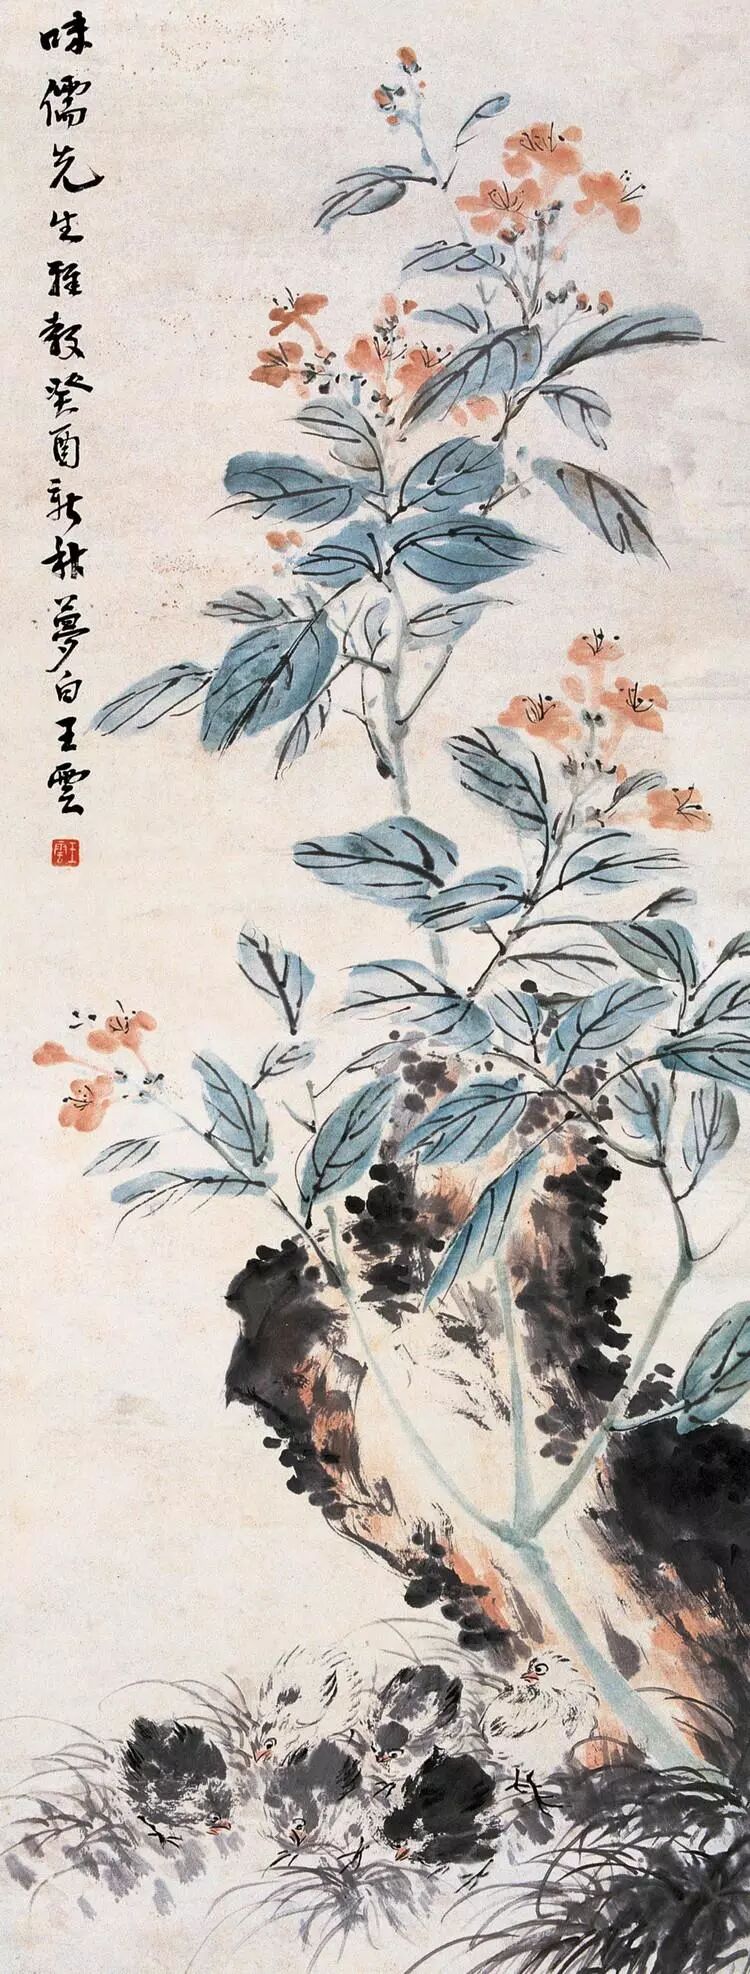 味儒先生雅教癸酉新秋夢白王雲
王雲